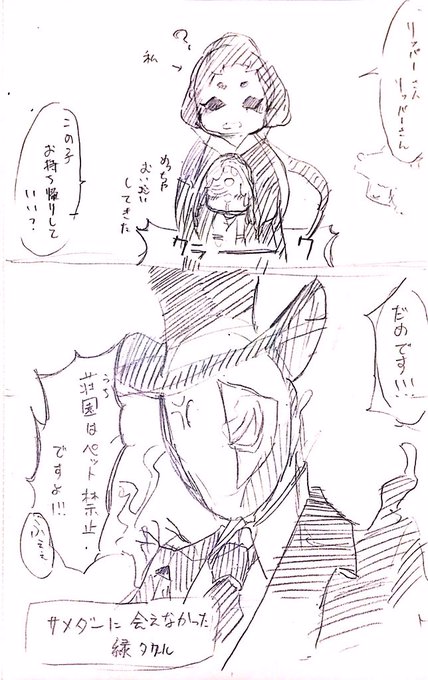 リッパーさん
リッパーさん
？
私
めっちゃ
おいかい
してきた
この子
お持ち帰りして
いい？
クラーーーク
だめです!!!
荘園はペット禁止
うち
ですよ!!!
ふぇぇ
サメダーに会えなかった
緑タクル